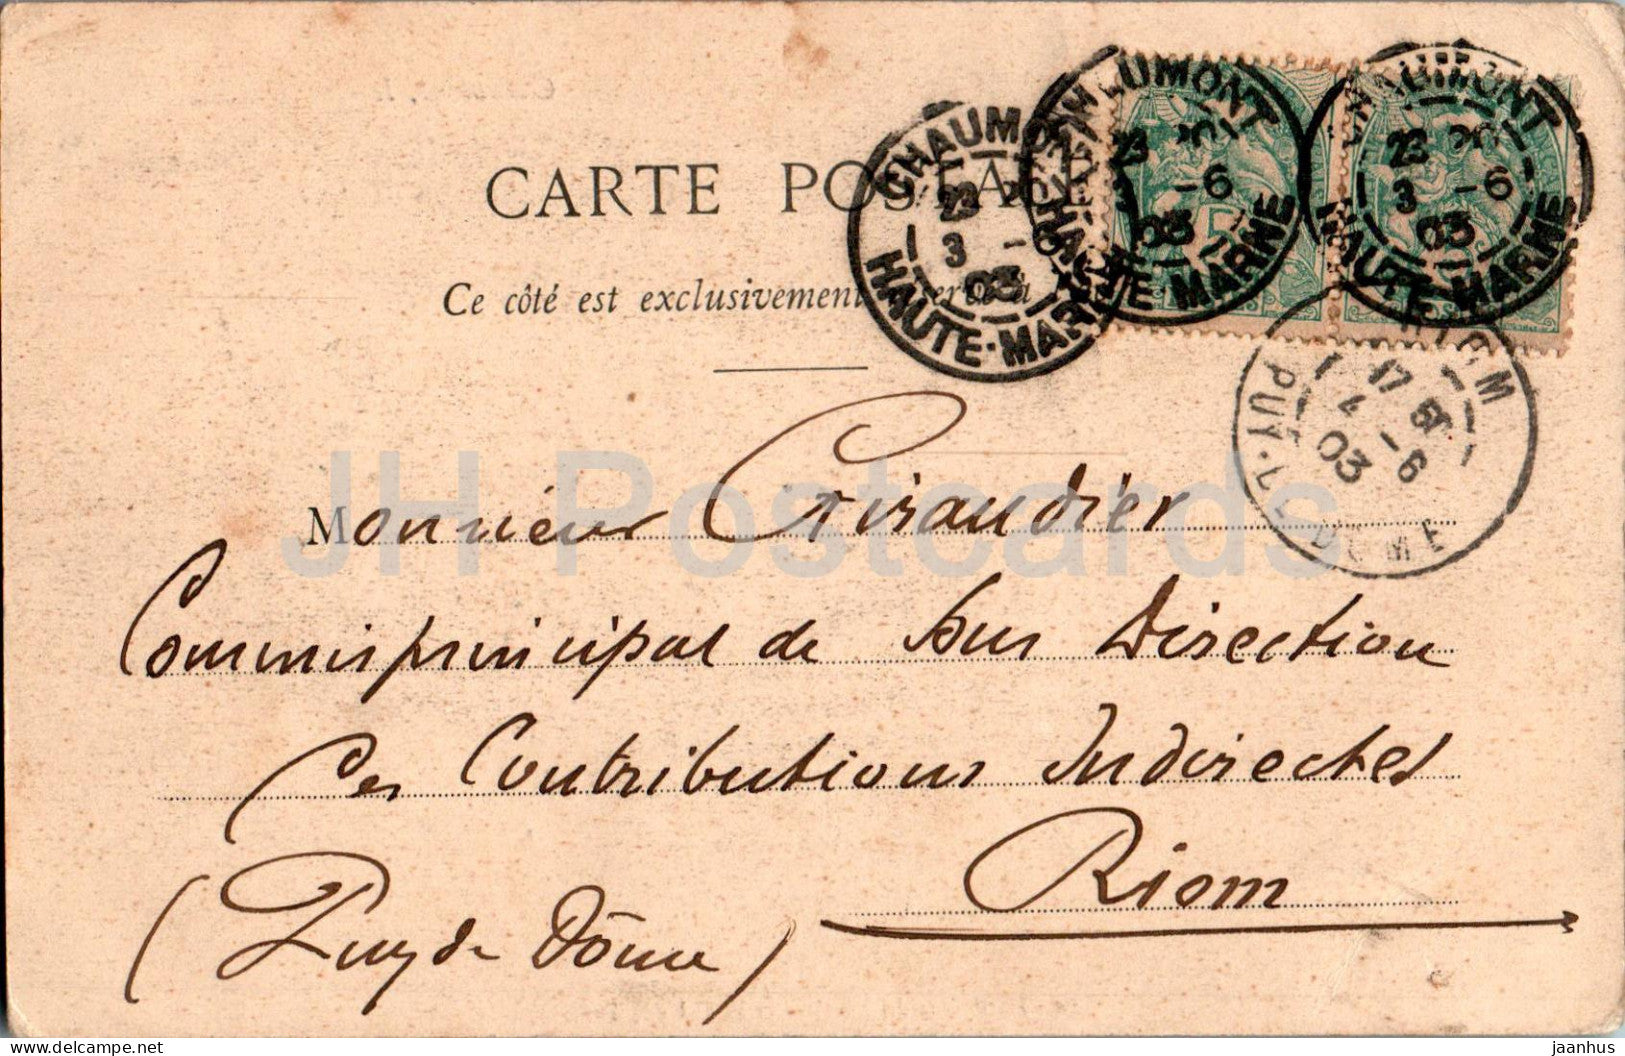 CARTE POSTALE
Ce côté est exclusivement réservé à
CHAUMONT
22 20
3 -6
03
HAUTE-MARNE
CHAUMONT
23 20
3 -6
03
HAUTE-MARNE
CHAUMONT
23 20
3 -6
03
HAUTE-MARNE
5
RIOM
17 50
4 -6
03
PUY-DE-DOME
Monsieur Giraudier
Commis principal de Sous Direction
Des Contributions Indirectes
Riom
(Puy de Dôme)
JH Postcards
delcampe.net
jaanhus